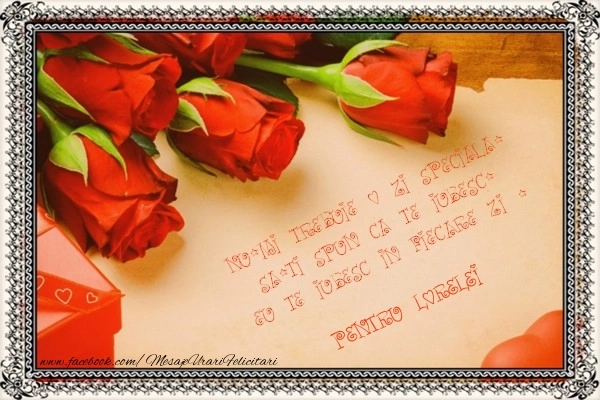 NU-MI TREBUIE O ZI SPECIALA*
SA-TI SPUN CA TE IUBESC*
EU TE IUBESC IN FIECARE ZI *
PENTRU LORELEI
www.facebook.com/MesajeUrariFelicitari